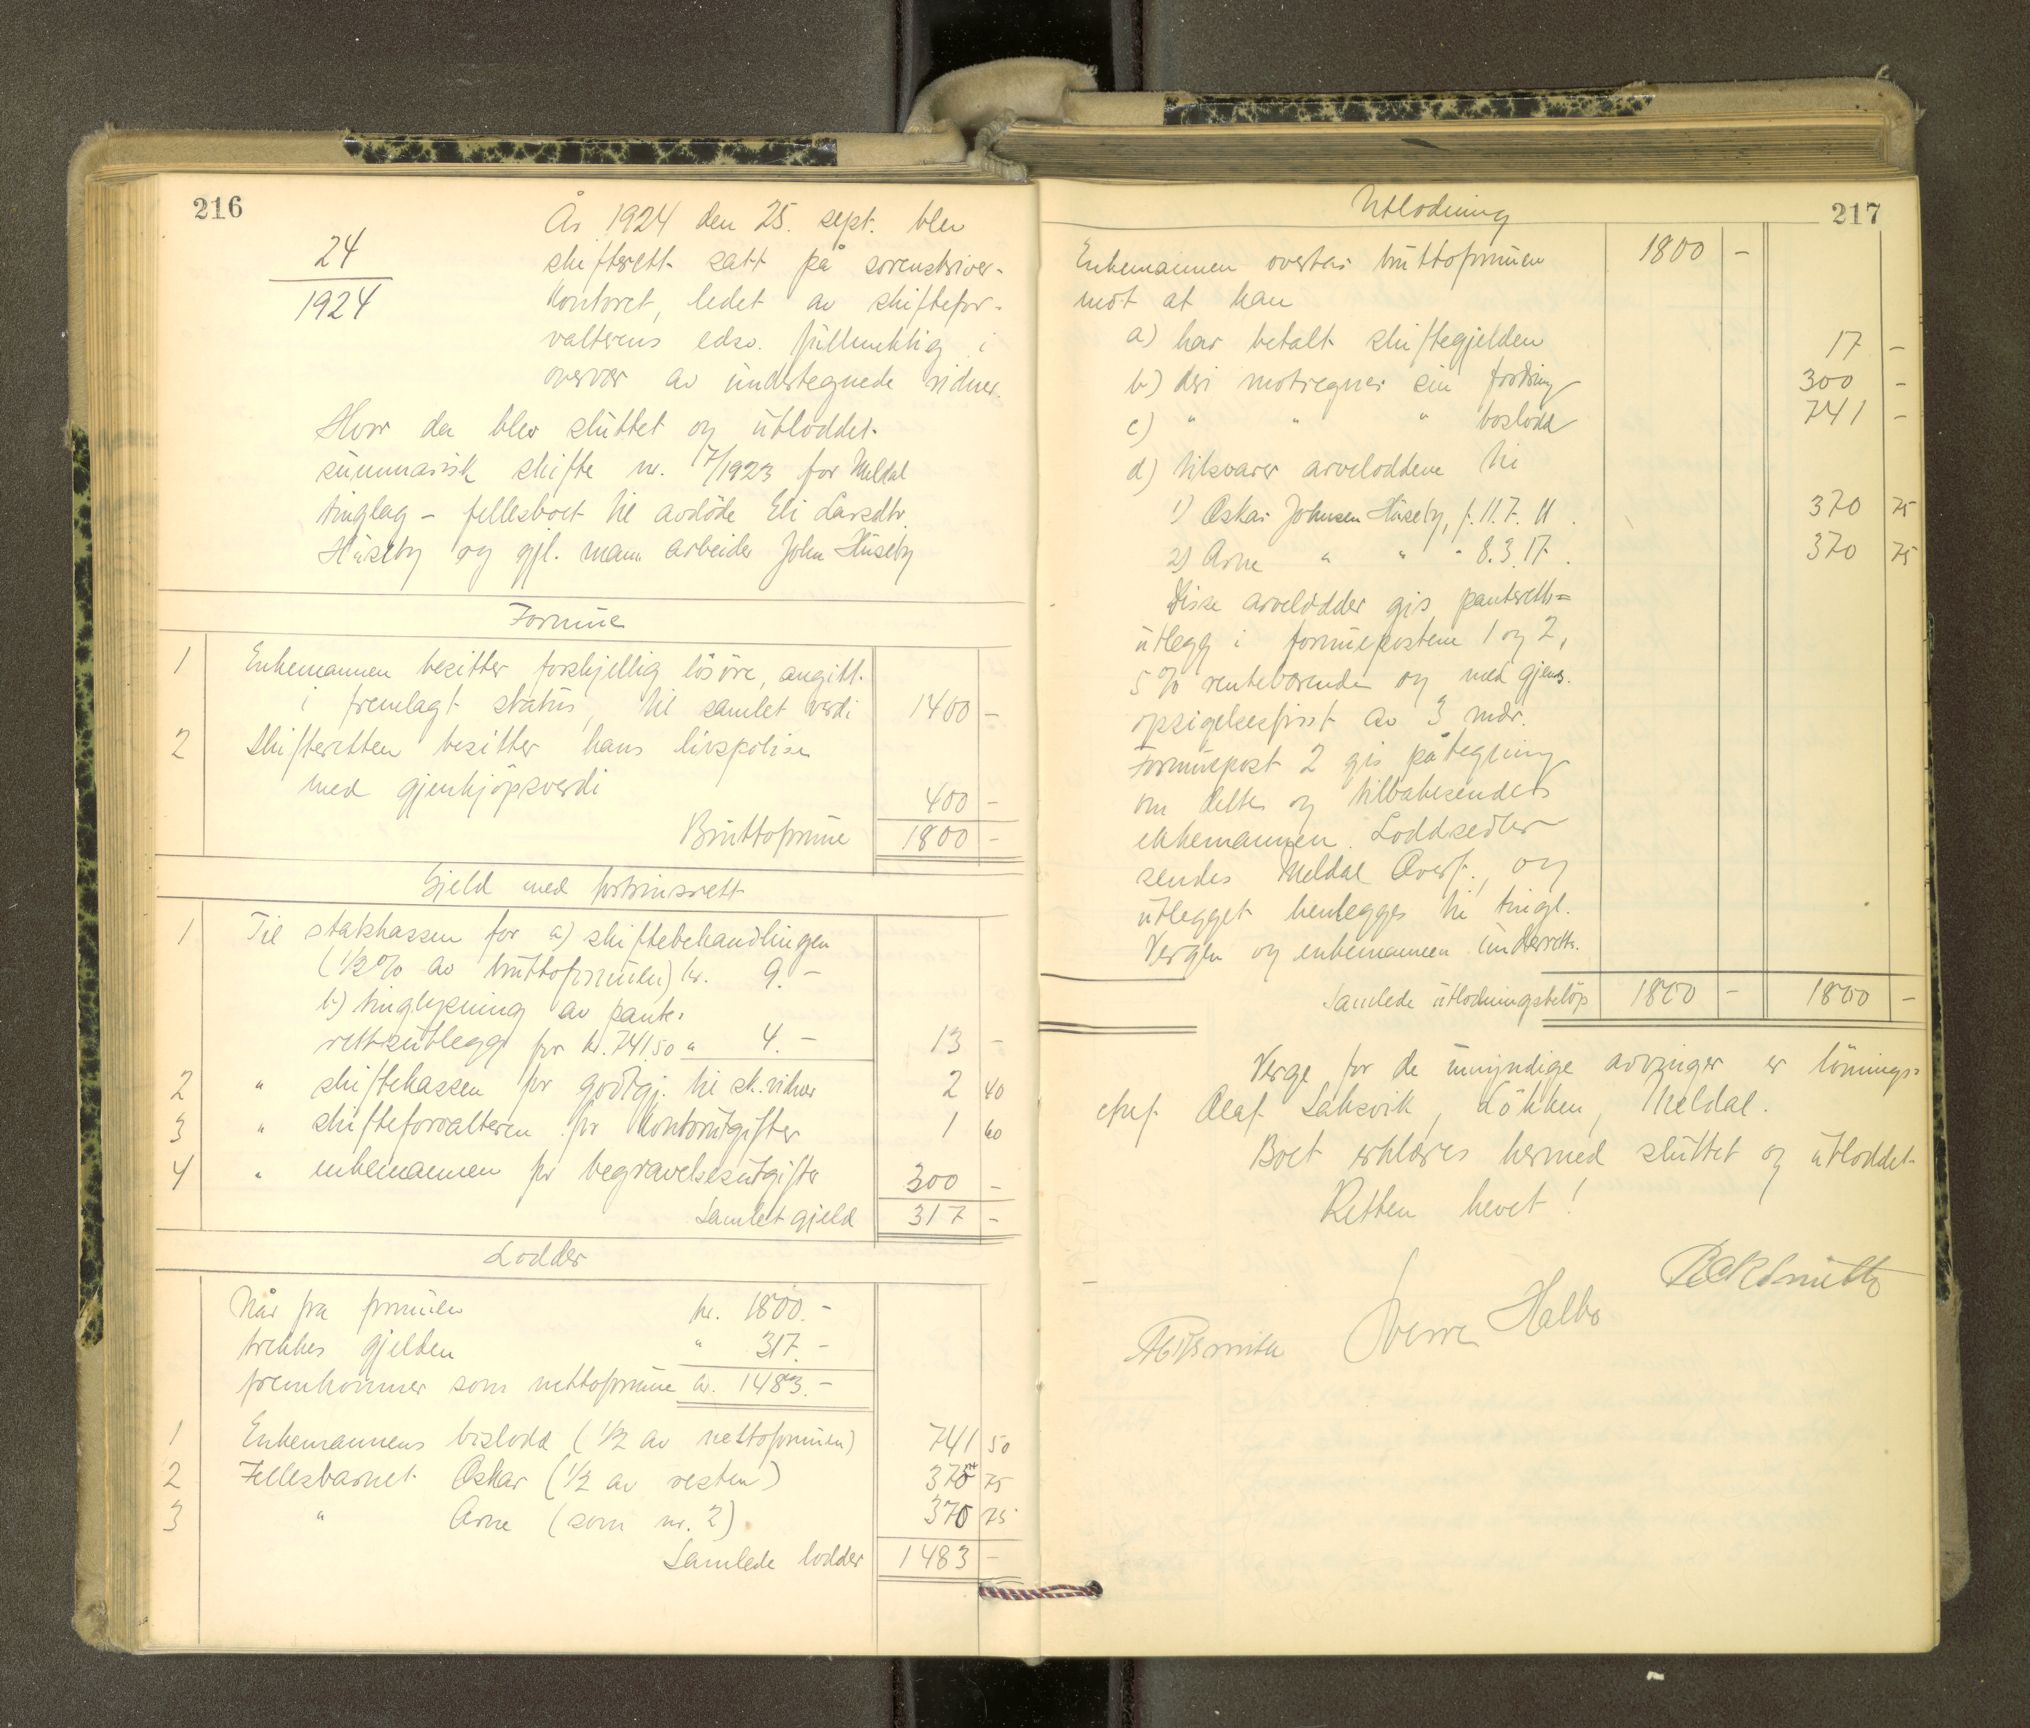 216
24
1924
År 1924 den 25. sept. blev
skifterett satt på sorenskriver-
kontoret, ledet av skiftefor-
valterens edsv. fullmektig i
overvær av undertegnede vidner.
Hvor da blev sluttet og utloddet
summarisk skifte nr. 17/1923 for Meldal
tinglag – fellesboet til avdöde Eli Larsdtr.
Huseby og gjl. mann arbeider John Huseby
Formue
1 Enkemannen besitter forskjellig lösöre, angitt
i fremlagt status, til samlet verdi 1400 –
2 Skifteretten besitter hans livspolise
med gjenkjöpsverdi 400 –
Bruttoformue 1800 –
Gjeld med fortrinsrett
1 Til statskassen for a) skiftebehandlingen
(1/2% av bruttoformuen) kr. 9.–
b) tinglysning av pante-
rettsutlegg for kr. 741,50 " 4.– 13 –
2 " skiftekassen for godtgj. til sk.vidner 2 40
3 " skifteforvalteren for kontorutgifter 1 60
4 " enkemannen for begravelsesutgifter 300 –
Samlet gjeld 317 –
Lodder
Når fra formuen kr. 1800.–
trekkes gjelden " 317.–
fremkommer som nettoformue kr. 1483.–
1 Enkemannens boslodd (1/2 av nettoformuen) 741 50
2 Fellesbarnet Oskar (1/2 av resten) 370 75
3 " Arne (som nr. 2) 370 75
Samlede lodder 1483 –
217
Utlodning
Enkemannen overtar bruttoformuen 1800 –
mot at han
a) har betalt skiftegjelden 17 –
b) deri motregner sin fordring 300 –
c) " " " boslodd 741 –
d) tilsvarer arveloddene til
1) Oskar Johnsen Huseby, f. 11.7.11. 370 75
2) Arne " " " 8.3.17. 370 75
Disse arvelodder gis panteretts-
utlegg i formuepostene 1 og 2,
5% rentebærende og med gjens.
opsigelsesfrist av 3 mdr.
Formuepost 2 gis påtegning
om dette og tilbakesendes
enkemannen. Loddsedler
sendes Meldal Overf., og
utlegget henlegges til tingl.
Vergen og enkemannen underrettes.
Samlede utlodningsbelöp 1800 – 1800 –
Verge for de umyndige arvinger er lönnings-
chef Olaf Laksvik, Lökken, Meldal.
Boet erklæres hermed sluttet og utloddet
Retten hevet!
Sverre Halbo